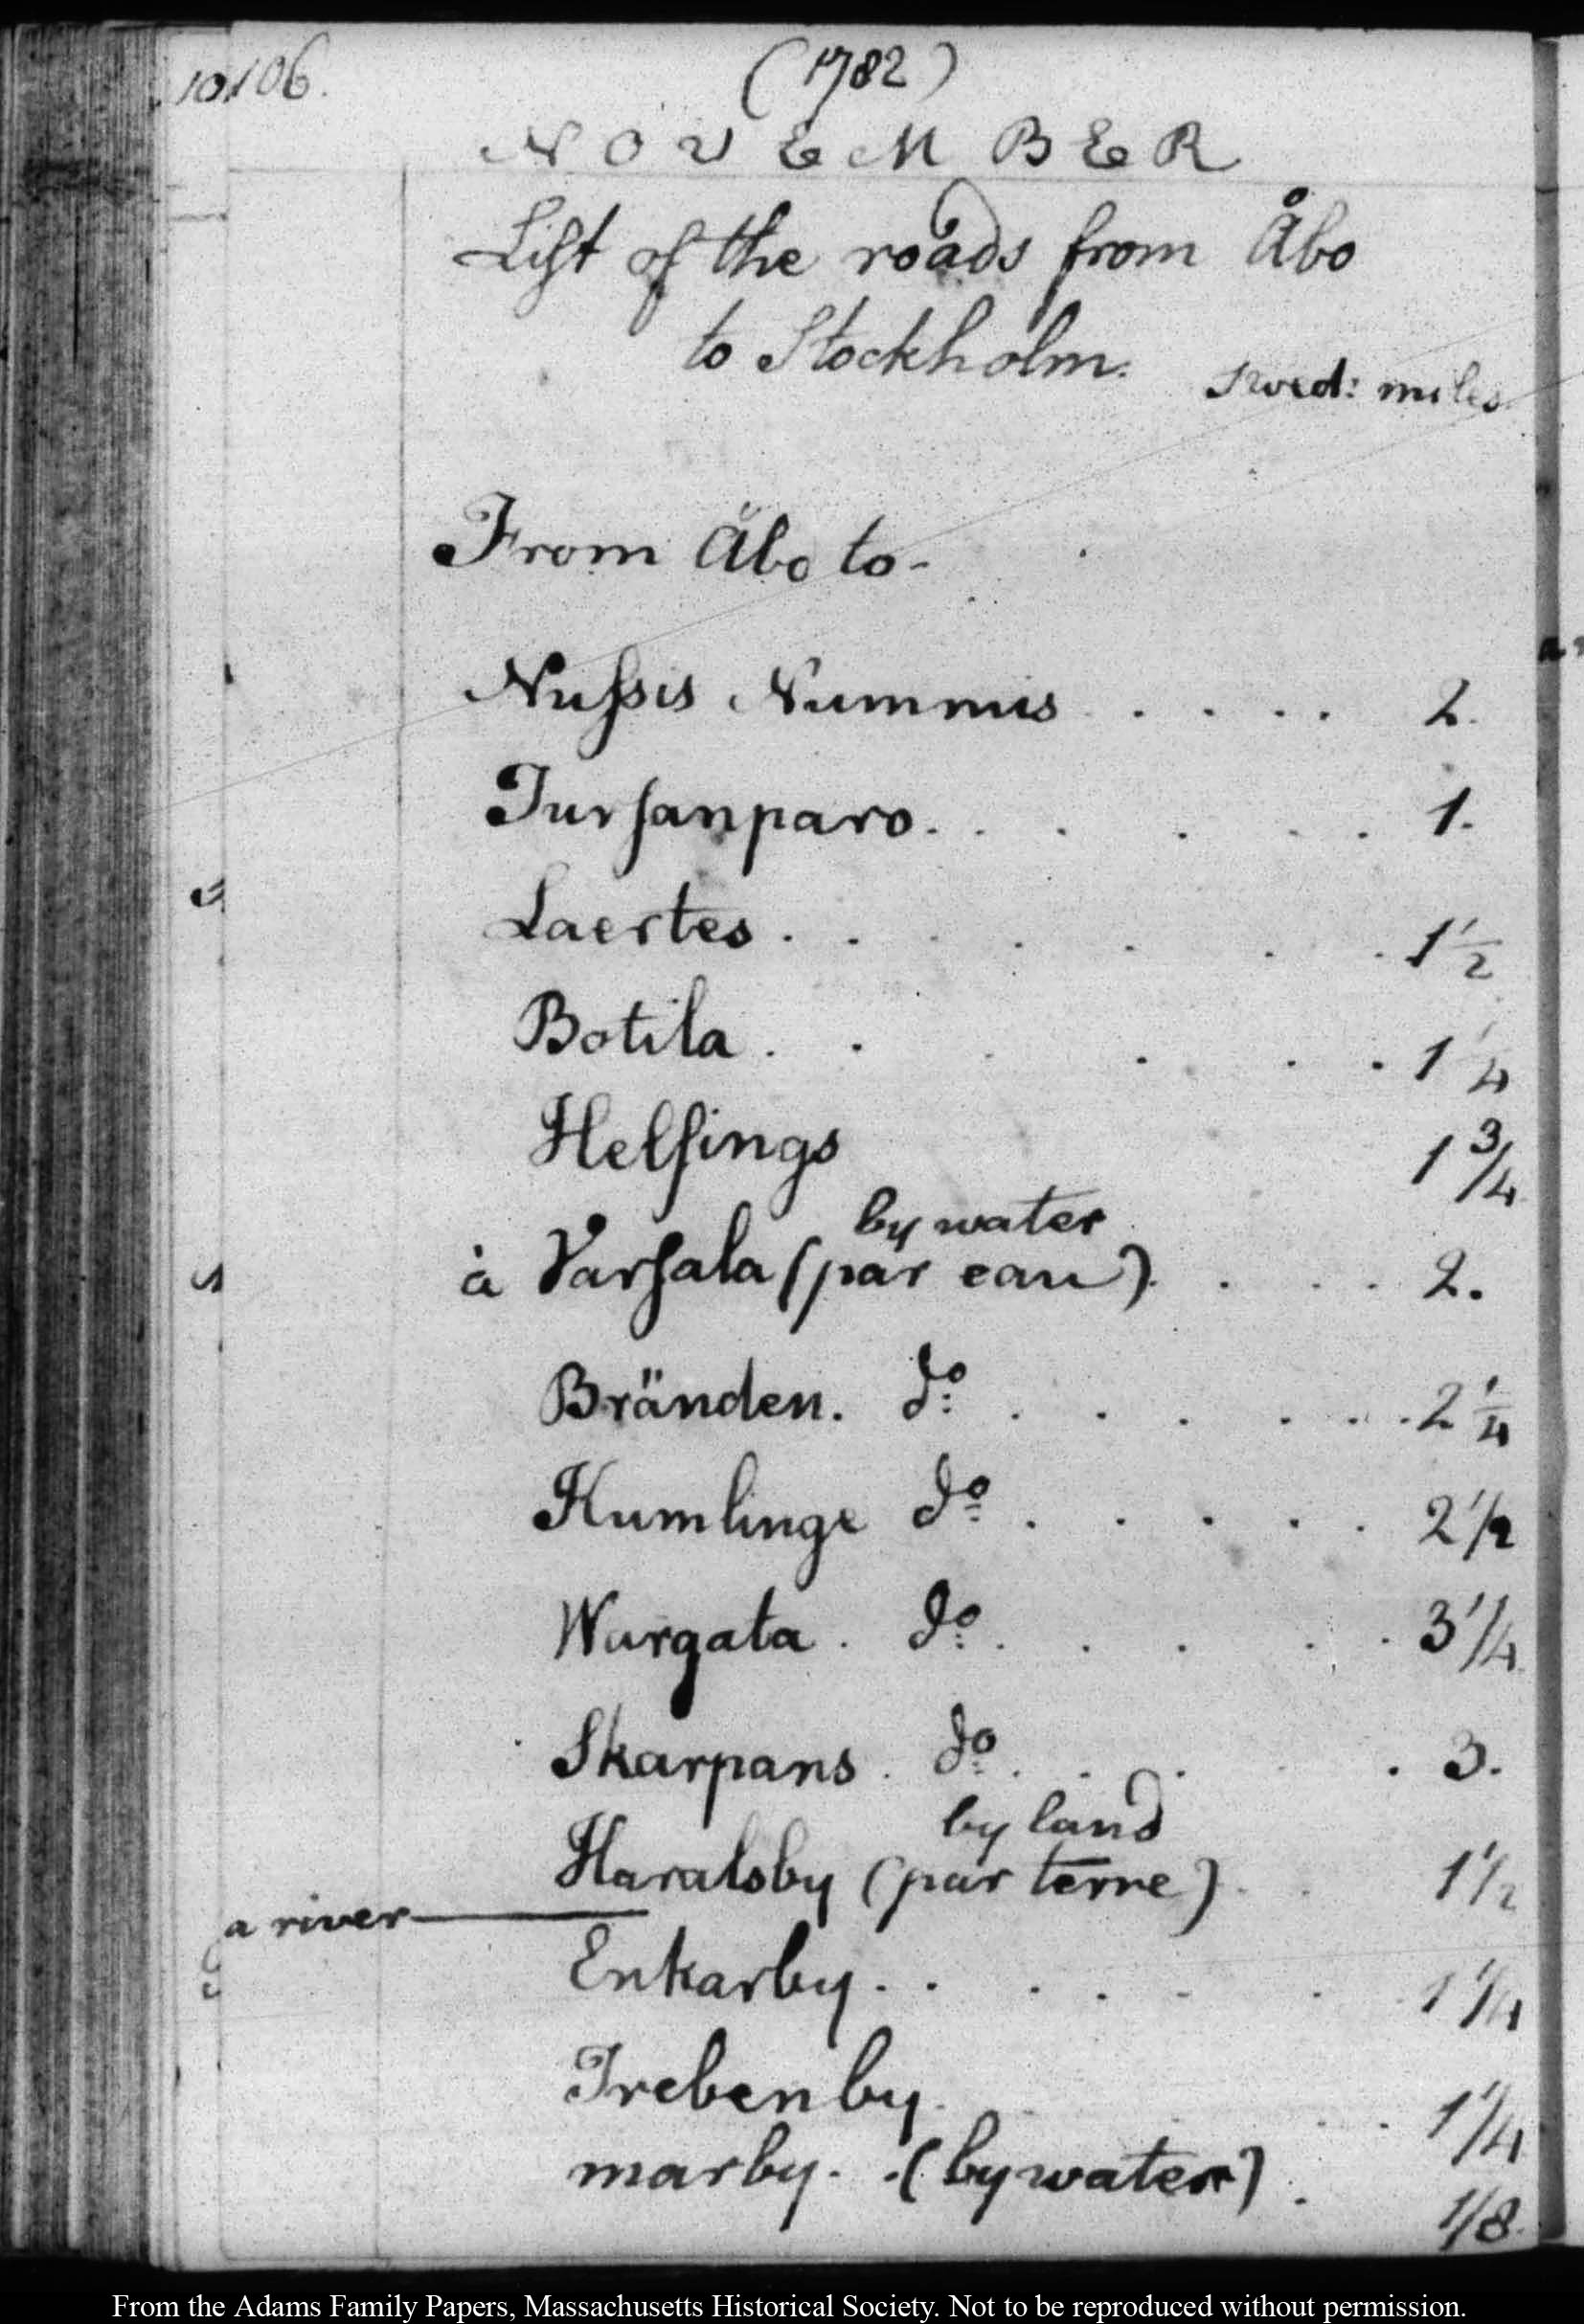 10 106.
(1782)
NOVEMBER
List of the roads from Åbo
to Stockholm.
Swed: miles
From Åbo to-
Nussis Nummis . . . . 2.
Tursanparo. . . . . . 1.
Laertes . . . . . . . 1 1/2
Botila . . . . . . 1 1/4
Helsings 1 3/4
by water
à Varsala (par eau) . . . 2.
Bränden. do: . . . . . . 2 1/4
Kumlinge do . . . . . 2 1/2
Wargata . do: . . . . . 3 1/4
Skarpans . do: . . . . . 3.
by land
Haralsby (par terre) . . 1 1/2
a river
Enkarby . . . . . . 1 1/4
Trebenby . . . 1 1/4
marby. . (by water) . 1/8.
From the Adams Family Papers, Massachusetts Historical Society. Not to be reproduced without permission.